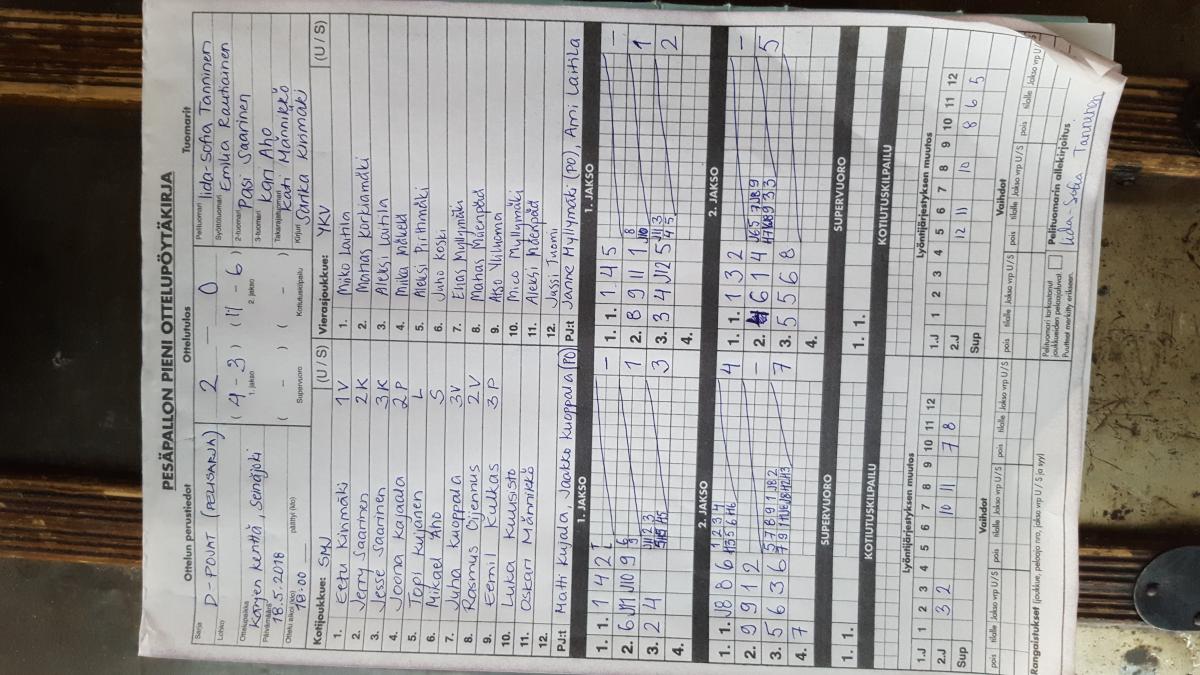 PESÄPALLON PIENI OTTELUPÖYTÄKIRJA
Ottelun perustiedot
Ottelutulos
Tuomarit
Sarja
D-POJAT (PELISARJA)
Lohko
Ottelupaikka
Karien kenttä, Seinäjoki
Päivämäärä
18.5.2018
Ottelu alkoi (klo)
18:00
päättyi (klo)
2 — 0
( 4 - 3 ) ( 11 - 6 )
1. jakso
2. jakso
( - ) ( - )
Supervuoro
Kotiutuskilpailu
Pelituomari Iida-Sofia Tanninen
Syöttötuomari Emilia Rautiainen
2-tuomari Pasi Saarinen
3-tuomari Kari Aho
Takarajatuomari Kati Männikkö
Kirjuri Sanka Kinimäki
Kotijoukkue: SMJ (U / S)
1. Eetu Kinimäki 1V
2. Jerry Saarinen 2K
3. Jesse Saarinen 3K
4. Joona Kajaala 2P
5. Topi Kuljanen L
6. Mikael Aho S
7. Juha Kuoppala 3V
8. Rasmus Ojennus 2V
9. Eemil Kulkas 3P
10. Luka Kuusisto
11. Oskari Männikkö
12.
PJ:t Matti Kujala, Jaakko Kuoppala (PO)
Vierasjoukkue: YKV (U / S)
1. Miiko Laitila
2. Manas Korkiamäki
3. Aleksi Laitila
4. Miika Mäkelä
5. Aleksi Pirttimäki
6. Juho Koski
7. Elias Myllymäki
8. Mahas Mäenpää
9. Akso Yliluoma
10. Mico Myllymäki
11. Aleksi Mäenpää
12. Jussi Tuomi
PJ:t Janne Myllymäki (PO), Ami Laitila
1. JAKSO
1. 1. 1 4 2 –
2. 6 J11 J10 9 1
3. 2 4 3
4.
1. JAKSO
1. 1. 1 4 5 –
2. 8 9 11 1 1
3. 3 4 J12 5 2
4.
2. JAKSO
1. 1. J8 8 6 4
2. 9 9 1 2 –
3. 5 6 3 6 7
4. 7
2. JAKSO
1. 1. 1 3 2 –
2. 6 1 4
3. 5 5 6 8 5
4.
SUPERVUORO
1. 1.
SUPERVUORO
1. 1.
KOTIUTUSKILPAILU
KOTIUTUSKILPAILU
Lyöntijärjestyksen muutos
1 2 3 4 5 6 7 8 9 10 11 12
1.J
2.J 3 2 10 11 7 8
Sup
Lyöntijärjestyksen muutos
1 2 3 4 5 6 7 8 9 10 11 12
1.J
2.J 12 11 10 8 6 5
Sup
Vaihdot
pois tilalle Jakso vrp U / S pois tilalle Jakso vrp U / S
Vaihdot
pois tilalle Jakso vrp U / S pois tilalle Jakso vrp U / S
Rangaistukset (joukkue, pelaaja nro, jakso vrp U / S ja syy)
Pelituomari tarkastanut joukkueiden pelaajaluvat
Puutteet merkitty erikseen.
Pelituomarin allekirjoitus
Iida-Sofia Tanninen